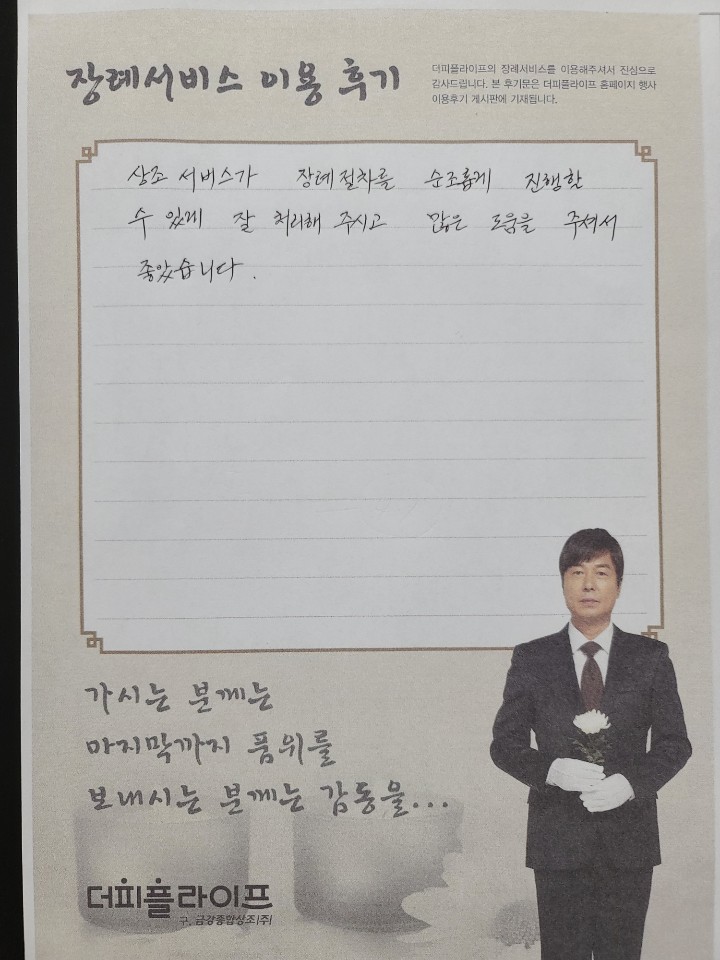 장례서비스 이용 후기
더피플라이프의 장례서비스를 이용해주셔서 진심으로
감사드립니다. 본 후기문은 더피플라이프 홈페이지 행사
이용후기 게시판에 기재됩니다.
상조 서비스가 장례절차를 순조롭게 진행할
수 있게 잘 처리해 주시고 많은 도움을 주셔서
좋았습니다.
가시는 분께는
마지막까지 품위를
보내시는 분께는 감동을...
더피플라이프
구. 금강종합상조(주)